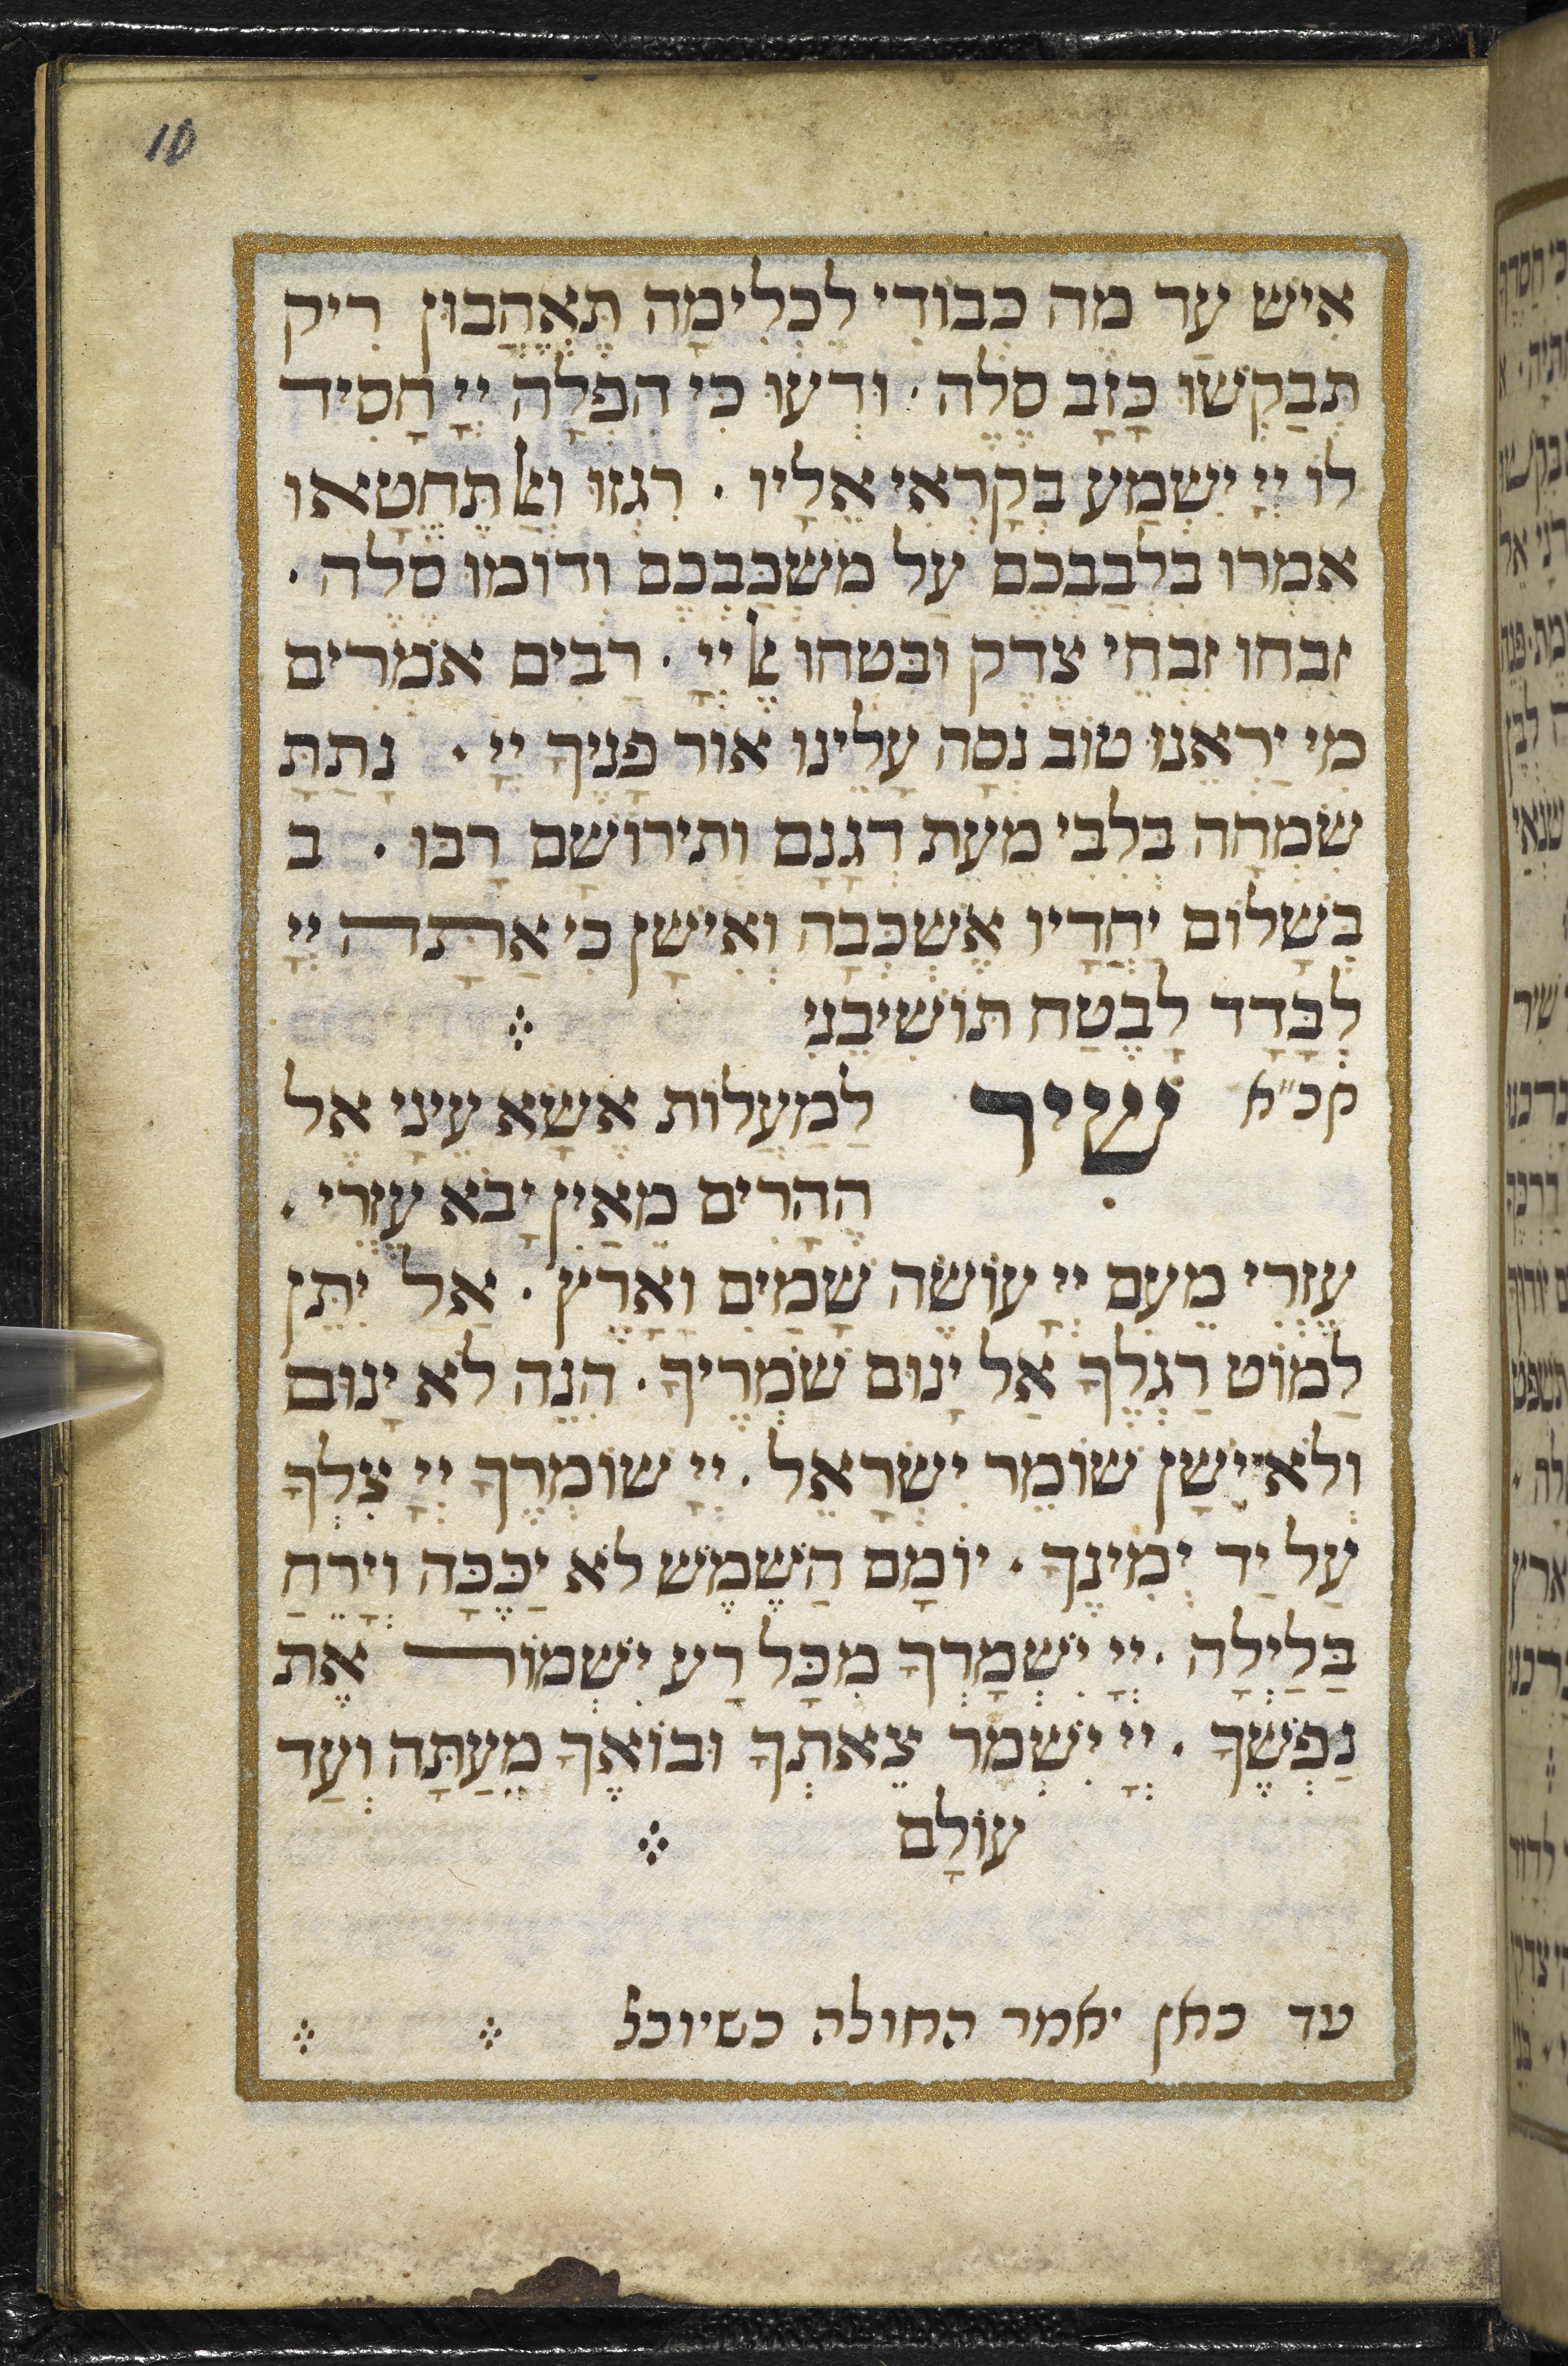 10
אִישׁ עַד מֶה כְבוֹדִי לִכְלִימָה תֶּאֱהָבוּן רִיק
תְּבַקְשׁוּ כָזָב סֶלָה · וּדְעוּ כִּי הִפְלָה יְיָ חָסִיד
לוֹ יְיָ יִשְׁמַע בְּקָרְאִי אֵלָיו · רִגְזוּ וְאַל תֶּחֱטָאוּ
אִמְרוּ בִלְבַבְכֶם עַל מִשְׁכַּבְכֶם וְדוֹמוּ סֶלָה ·
זִבְחוּ זִבְחֵי צֶדֶק וּבִטְחוּ אֶל יְיָ · רַבִּים אֹמְרִים
מִי יַרְאֵנוּ טוֹב נְסָה עָלֵינוּ אוֹר פָּנֶיךָ יְיָ · נָתַתָּ
שִׂמְחָה בְלִבִּי מֵעֵת דְּגָנָם וְתִירוֹשָׁם רָבּוּ · ב
בְּשָׁלוֹם יַחְדָּיו אֶשְׁכְּבָה וְאִישָׁן כִּי אַתָּה יְיָ
לְבָּדָד לָבֶטַח תּוֹשִׁיבֵנִי
קכ״א שִׁיר לַמַעֲלוֹת אֶשָּׂא עֵינַי אֶל
הֶהָרִים מֵאַיִן יָבֹא עֶזְרִי ·
עֶזְרִי מֵעִם יְיָ עוֹשֶׂה שָׁמַיִם וָאָרֶץ · אַל יִתֵּן
לַמּוֹט רַגְלֶךָ אַל יָנוּם שֹׁמְרֶיךָ · הִנֵּה לֹא יָנוּם
וְלֹא יִישָׁן שׁוֹמֵר יִשְׂרָאֵל · יְיָ שׁוֹמְרֶךָ יְיָ צִלְּךָ
עַל יַד יְמִינֶךָ · יוֹמָם הַשֶּׁמֶשׁ לֹא יַכֶּכָּה וְיָרֵחַ
בַּלַּיְלָה · יְיָ יִשְׁמָרְךָ מִכָּל רָע יִשְׁמוֹר אֶת
נַפְשֶׁךָ · יְיָ יִשְׁמֹר צֵאתְךָ וּבוֹאֶךָ מֵעַתָּה וְעַד
עוֹלָם
עד כאן יאמר החולה כשיוכל